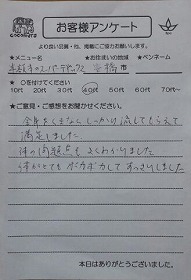 お客様アンケート
より良い品質・技、掲載にご協力お願いします。
★メニュー名 ★お住まいの地域 ★ペンネーム
橋市
★ ○を付けてください
10代 20代 30代 40代 50代 60代 70代
★ご意見・ご感想をお聞かせください。
全身をくまなくしっかり流してもらえて
満足しました。
体の問題点もよくわかりました
体がとてもポカポカしてすっきりしました
本日はありがとうございました。